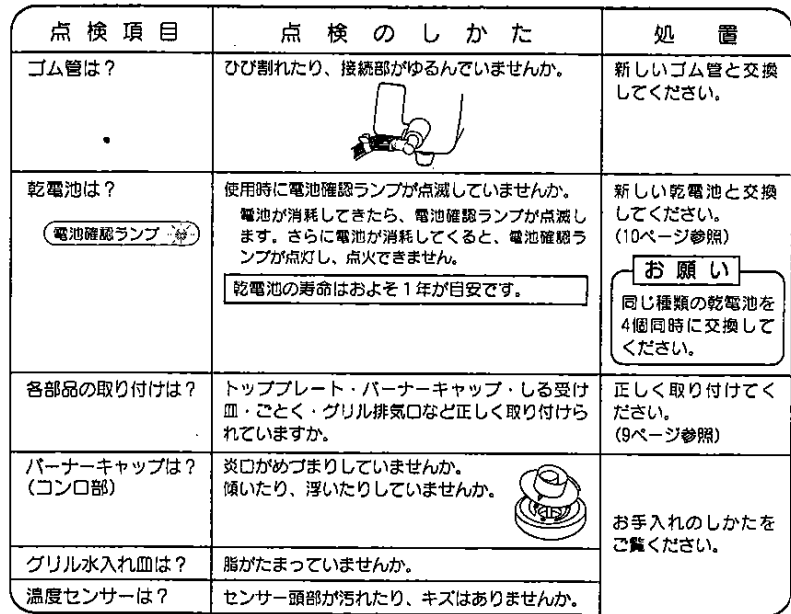 点検項目
点検のしかた
処置
ゴム管は？
ひび割れたり、接続部がゆるんでいませんか。
新しいゴム管と交換
してください。
乾電池は？
電池確認ランプ
使用時に電池確認ランプが点滅していませんか。
電池が消耗してきたら、電池確認ランプが点滅し
ます。さらに電池が消耗してくると、電池確認ラ
ンプが点灯し、点火できません。
乾電池の寿命はおよそ１年が目安です。
新しい乾電池と交換
してください。
(10ページ参照)
お願い
同じ種類の乾電池を
4個同時に交換して
ください。
各部品の取り付けは？
トッププレート・バーナーキャップ・しる受け
皿・ごとく・グリル排気口など正しく取り付けら
れていますか。
正しく取り付けてく
ださい。
(9ページ参照)
バーナーキャップは？
(コンロ部)
炎口がめづまりしていませんか。
傾いたり、浮いたりしていませんか。
お手入れのしかたを
ご覧ください。
グリル水入れ皿は？
脂がたまっていませんか。
温度センサーは？
センサー頭部が汚れたり、キズはありませんか。